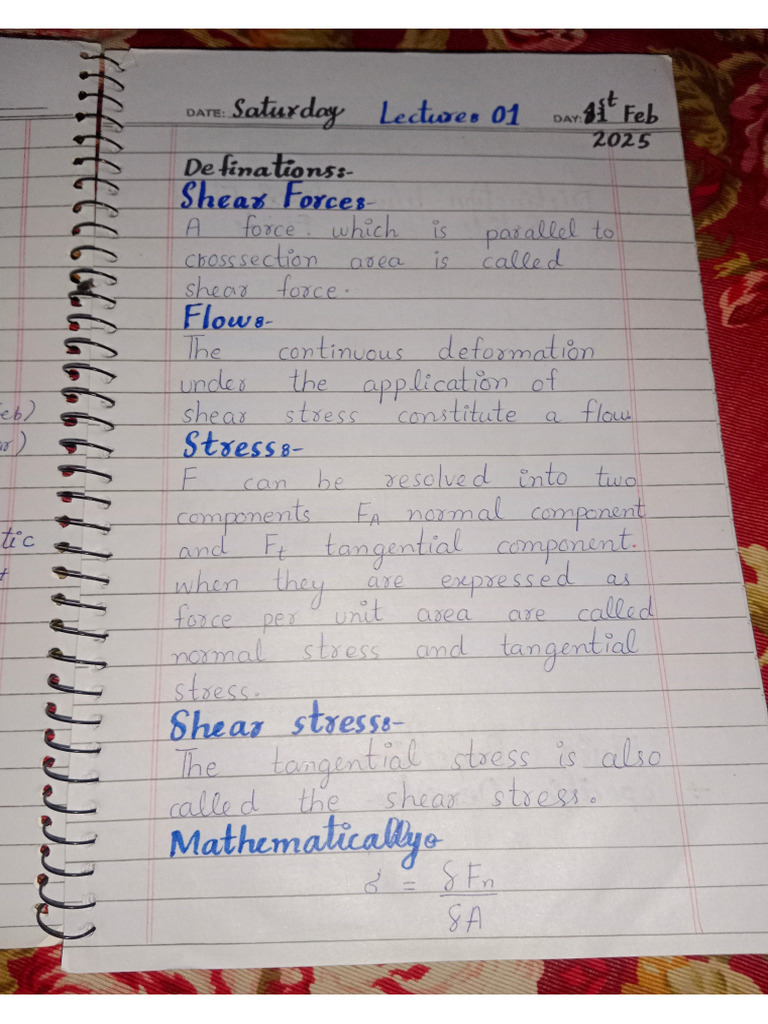 DATE: Saturday Lecture: 01 DAY: 1st Feb
2025
Definations:-
Shear Force:-
A force which is parallel to
crosssection area is called
shear force.
Flow:-
The continuous deformation
under the application of
shear stress constitute a flow
Stress:-
F can be resolved into two
components F_A normal component
and F_t tangential component.
when they are expressed as
force per unit area are called
normal stress and tangential
stress.
Shear stress:-
The tangential stress is also
called the shear stress.
Mathematically:
= δFn
δA
eb)
tic